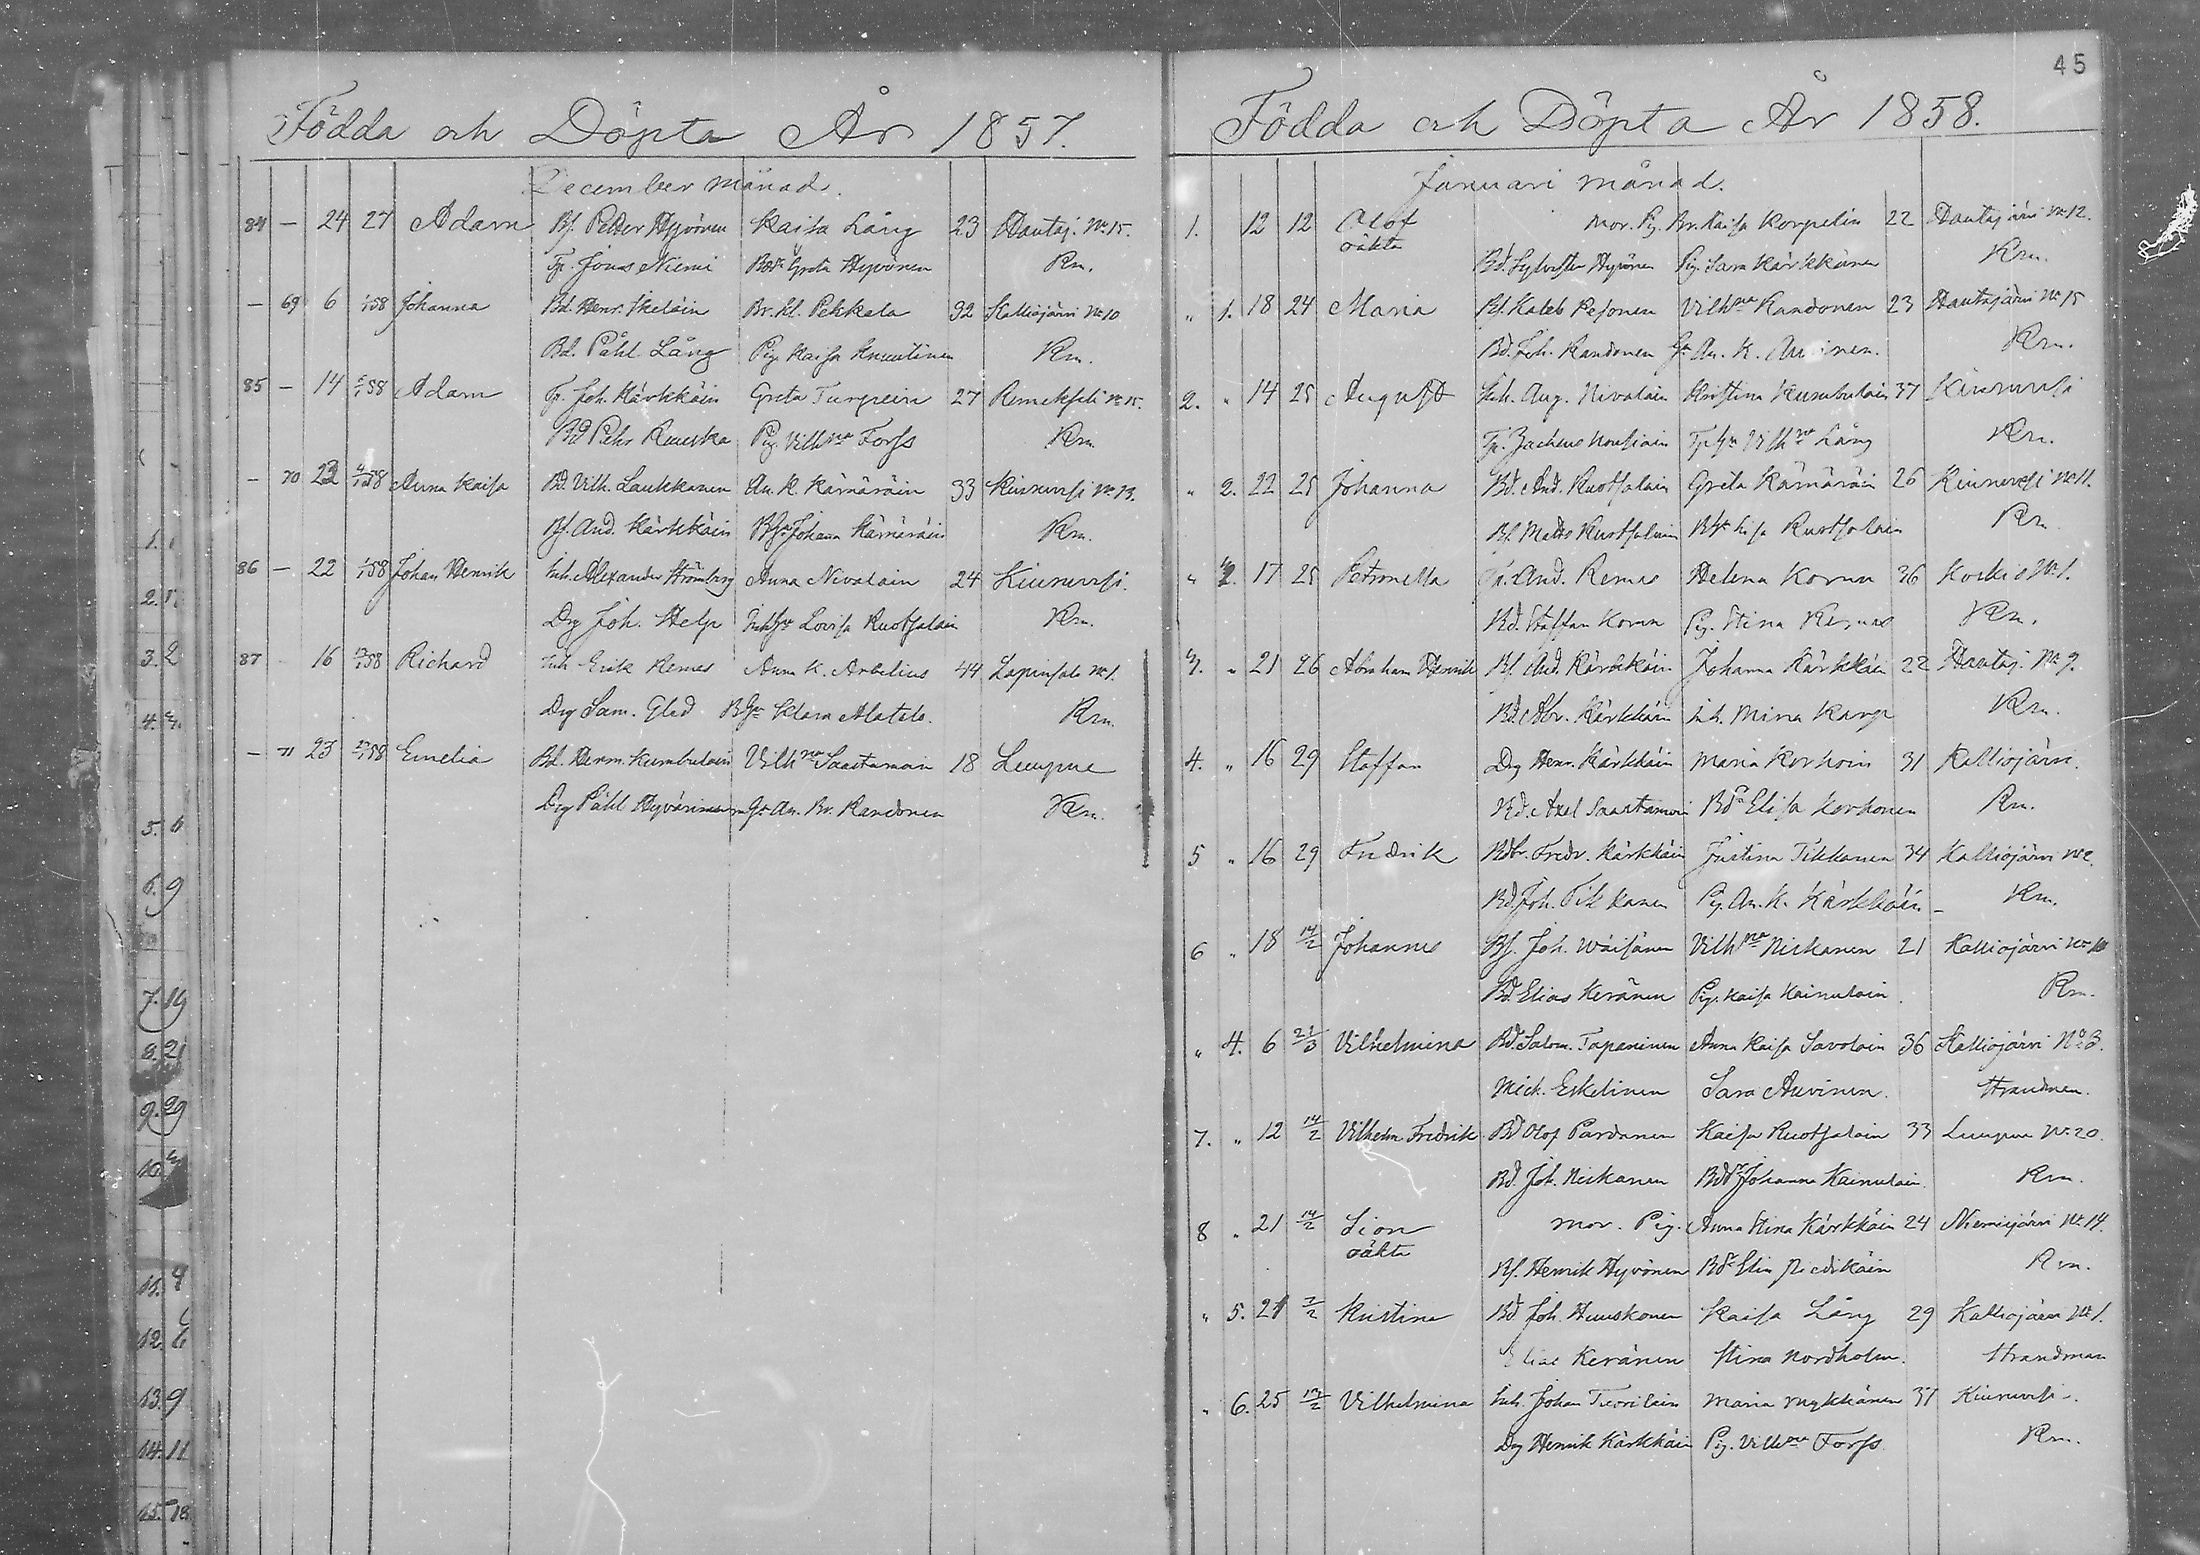 Födda och Döpta År 1857.
December månad.
84 – 24 27 Adam Bf. Petter Hyvönen Kaisa Lång 23 Hautaj. No 15.
Tp. Jonas Niemi Bda Greta Hyvönen Rm.
– 69 6 1/1 58 Johanna Bd. Henr. Ikeläin Br. Kl. Pekkala 32 Kalliojärvi No 10
Bd. Påhl Lång Pig. Kaisa Knuutinen Rm.
85 – 14 58 Adam Tp. Joh. Kärkkäin Greta Turpein 27 Remeksjili No 15.
Bd Pehr Ruuska Pig. Vilhna Forss Rm
– 70 23 58 Anna Kaisa Bd. Vilh. Laukkanen An. K. Kämäräin 33 Kiuruvesi No 13.
Bf. And. Kärkkäin Bfa Johana Kämäräin Rm.
86 – 22 58 Johan Henrik Inh. Alexander Strömberg Anna Nivalain 24 Kiuruvesi.
Drg Joh. Help Inhha Lovisa Ruotsalain Rm.
87 16 58 Richard Inh Erik Remes Anna K. Arbelius 44 Lapinsalo No 1.
Drg Sam. Glad Bfa Klara Alatalo. Rm.
– 71 23 58 Emelia Bd. Herm. Kumbulain Vilhna Saastamoin 18 Luupue
Drg Påhl Hyvärinen Ga An. Br. Kandonen Rm.
45
Födda och Döpta År 1858.
Januari månad.
1. 12 12 Olof oäkta Mor. Pig. Br. Kaisa Korpelin 22 Hautajärvi No 12.
Bd. Sylvester Hyvönen Pig. Sara Kärkkäinen Rm.
" 1. 18 24 Maria Bd. Kaleb Pesonen Vilhna Kandonen 23 Hautajärvi No 15
Bd. Joh. Kandonen Ga An. K. Auvinen. Rm.
2. " 14 25 August Inh. Aug. Nivalain Kristina Kumbulain 37 Kiuruvesi
Tp. Zacheus Nousiain Tp hu Vilhna Lång Rm.
" 2. 22 25 Johanna Bd. And. Ruotsalain Greta Kämäräin 26 Kiuruvesi No 11.
Bf. Matts Ruotsalain Bfa Lisa Ruotsalain Rm
" 17 25 Petronella And. Remes Helena Korun 36 Koskis No 1.
Bd. Staffan Korun Pig. Stina Remes Rm.
" 21 26 Abraham Henrik Bf. And. Kärkkäin Johanna Kärkkäin 22 Hautaj. No 9.
Bd. Abr. Kärkkäin Inh. Mina Karp Rm.
4. " 16 29 Staffan Drg Henr. Kärkkäin Maria Korhoin 31 Kalliojärvi.
Bd. Axel Saastamoin Bda Elisa Korhonen Rm.
5 " 16 29 Fredrik Bdbr. Fredr. Kärkkäin Justina Tikkanen 34 Kalliojärvi
Bd. Joh. Tikkanen Pig. An. K. Kärkkäin Rm.
6 " 18 14/2 Johannes Bf. Joh. Wäisänen Vilhna Niskanen 21 Kalliojärvi No 10
Bd. Elias Keränen Pig. Kaisa Kainulain. Rm.
" 4. 6 21/3 Vilhelmina Bd. Salom. Tapaninen Anna Kaisa Savolain 36 Kalliojärvi No 3.
Mich. Eskelinen Sara Auvinen. Strandmen.
7. " 12 14/2 Vilhelm Fredrik Bd Olof Pardanen Kaisa Ruotsalain 33 Luupue No 20.
Bd. Joh. Niskanen Bda Johanna Kainulain. Rm.
8 " 21 14/2 Sion oäkta Mor. Pig. Anna Stina Kärkkäin 24 Niemisjärvi No 14.
Bf. Henrik Hyvönen Bda Elin Piedikäin Rm.
" 5. 21 7/2 Kristina Bd Joh. Huuskonen Kaisa Lång 29 Kalliojärvi No 1.
Elias Keränen Stina Nordholm. Strandman
" 6. 25 14/2 Vilhelmina Inh. Johan Tuorilain Maria Mykkänen 37 Kiuruvesi.
Drg Henrik Kärkkäin Pig. Vilhna Forss Rm.